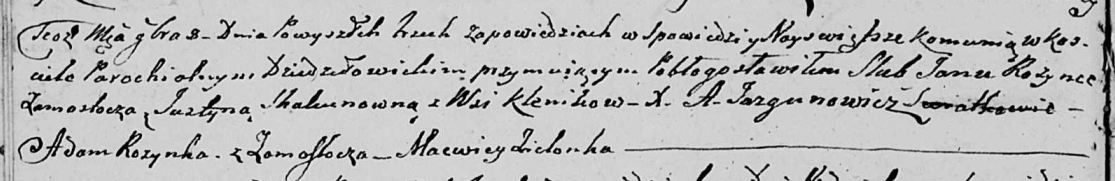 Teoż Mca 9bra 8 – Dnia Powyszłych trzech zapowiedziach w Spowiedzi y Nayswiętsze komunią w kos-
ciele Parochialnym Dziedziłowickim przymuiącym Pobłogosławiłem Slub Janu Rozynce
Zamosłocza z Justyną Skakunowną z Wsi Klenikow – X. A. Jazgunowicz Swiatkowie –
Adam Rozynka z Zamosłocza – Maciey Zielonka